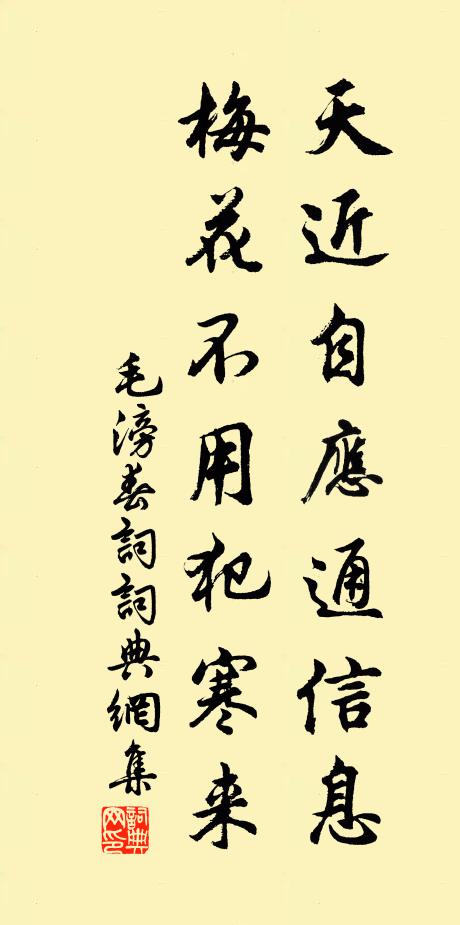 天近自應通信息
梅花不用犯寒来
毛滂春詞詞典網集
詞典网印